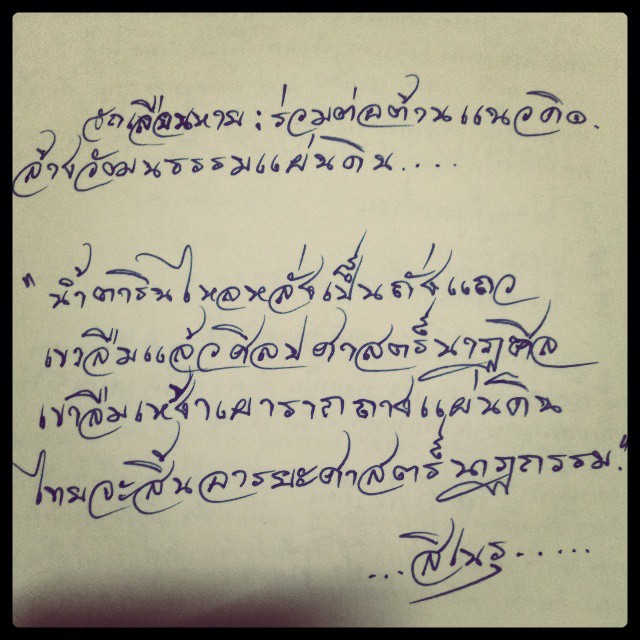 เลือนหาย : ร่วมต่อต้านแนวคิด.
ล้างวัฒนธรรมแผ่นดิน....
"น้ำตารินไหลหลั่งเป็นถั่งแถว
เขาลืมแล้วศิลปศาสตร์นาฏศิล
เขาลืมเหง้าเผารากถางแผ่นดิน
ไทยจะสิ้นอารยะศาสตร์นาฏกรรม."
...สีเนรุ.....